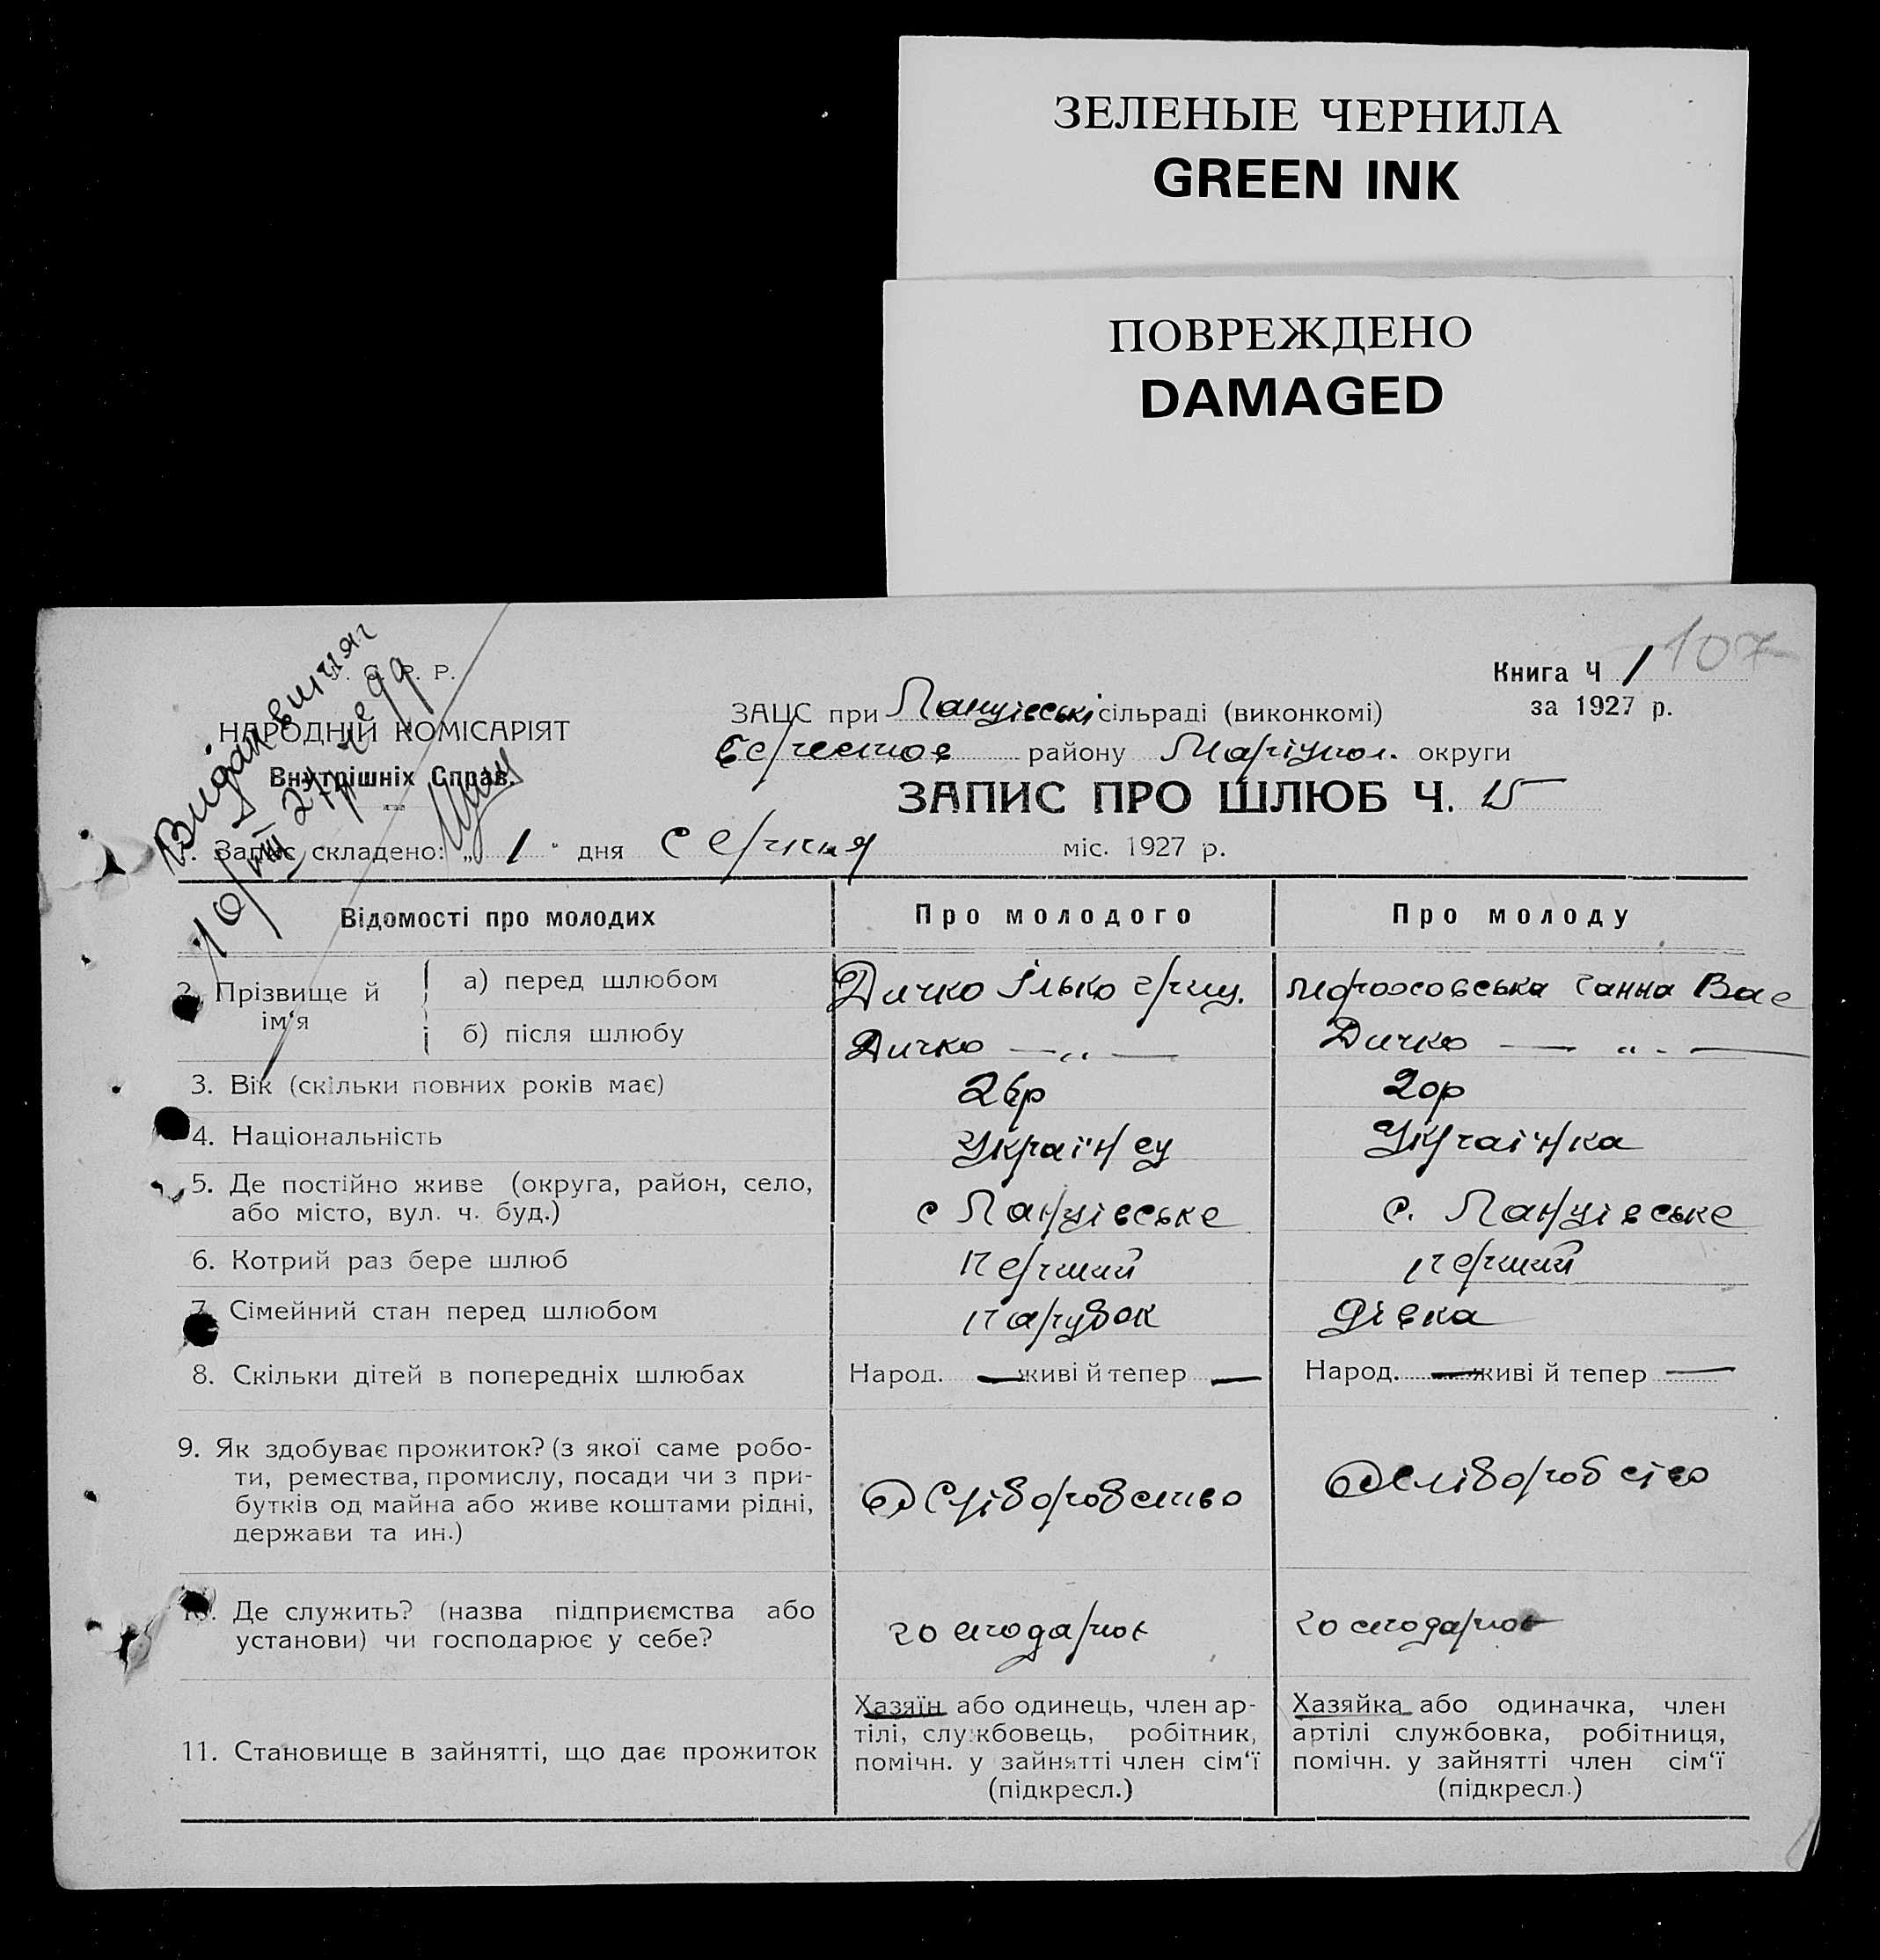 ЗЕЛЕНЫЕ ЧЕРНИЛА
GREEN INK
ПОВРЕЖДЕНО
DAMAGED
107
Книга Ч 1
за 1927 р.
Р. Р.
НАРОДНІЙ КОМІСАРІЯТ
Внутрішніх Справ.
10/VIII 27р
ЗАЦС при сільраді (виконкомі)
району Маріупол. округи
ЗАПИС ПРО ШЛЮБ Ч. 15
1. Запис складено: „ 1 " дня серпня міс. 1927 р.
Відомості про молодих Про молодого Про молоду
2. Прізвище й ім‘я а) перед шлюбом Дичко Ілько Гриц. Ганна Вас
б) після шлюбу Дичко — „ — Дичко — „ —
3. Вік (скільки повних років має) 26р 20р
4. Національність Українец Українка
5. Де постійно живе (округа, район, село, с с.
або місто, вул. ч. буд.)
6. Котрий раз бере шлюб перший перший
7. Сімейний стан перед шлюбом парубок дівка
8. Скільки дітей в попередніх шлюбах Народ. — живі й тепер — Народ. — живі й тепер —
9. Як здобуває прожиток? (з якої саме робо-
ти, ремества, промислу, посади чи з при-
бутків од майна або живе коштами рідні,
держави та ин.)
10. Де служить? (назва підприємства або
установи) чи господарює у себе?
11. Становище в зайнятті, що дає прожиток
Хазяїн або одинець, член ар-
тілі, службовець, робітник,
помічн. у зайнятті член сім‘ї
(підкресл.)
Хазяйка або одиначка, член
артілі службовка, робітниця,
помічн. у зайнятті член сім‘ї
(підкресл.)